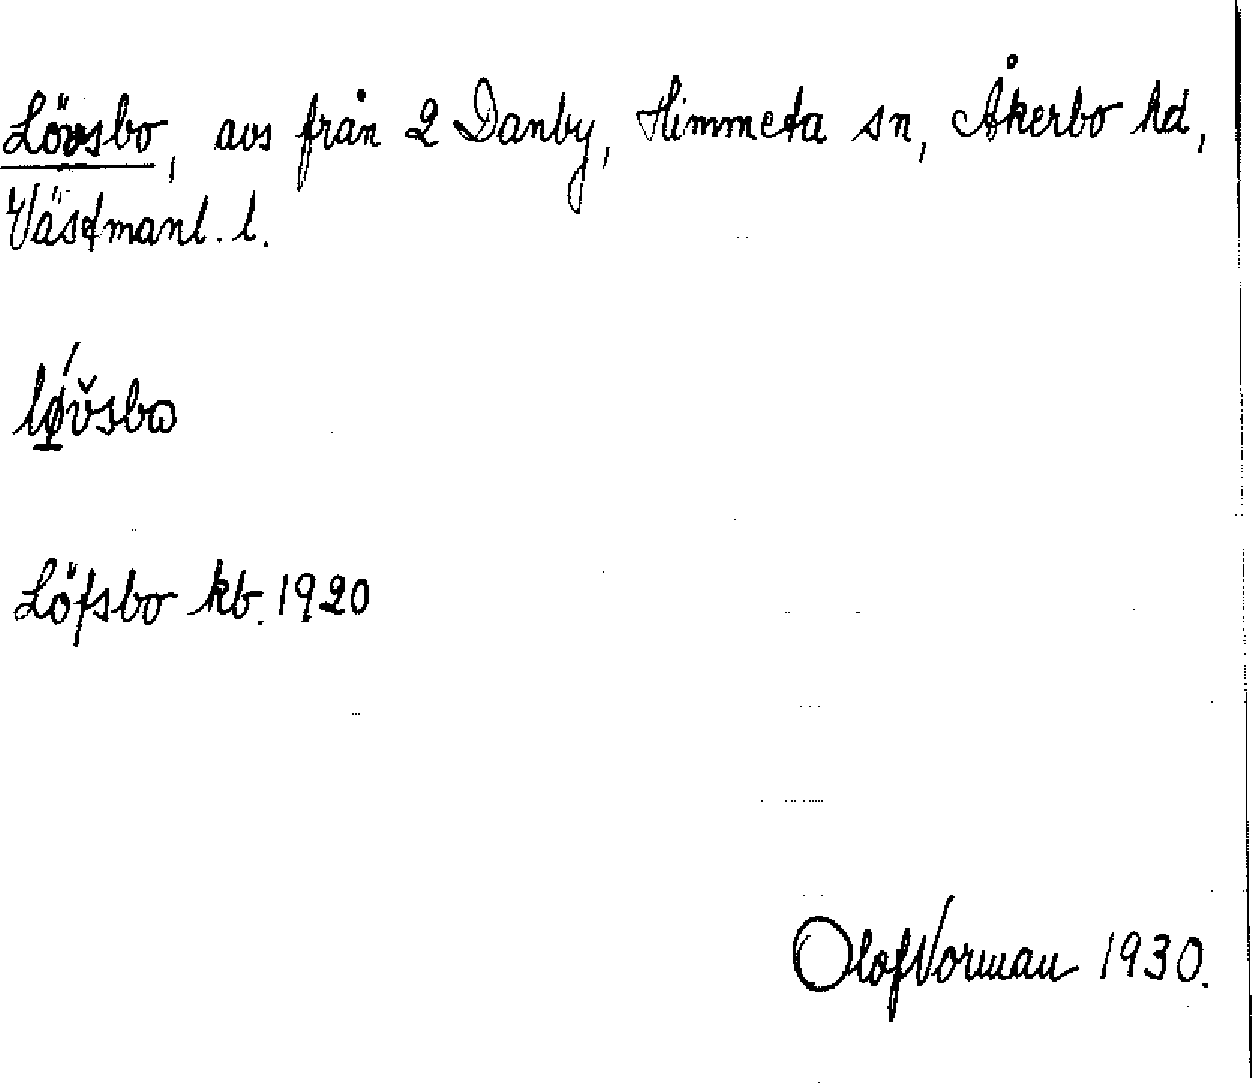 Lövsbo, avs från 2 Danby, Himmeta sn, Åkerbo hd,
Västmanl. l.
lǿ̲v̌sbɷ
Löfsbo kb. 1920
Olof Vorman 1930.